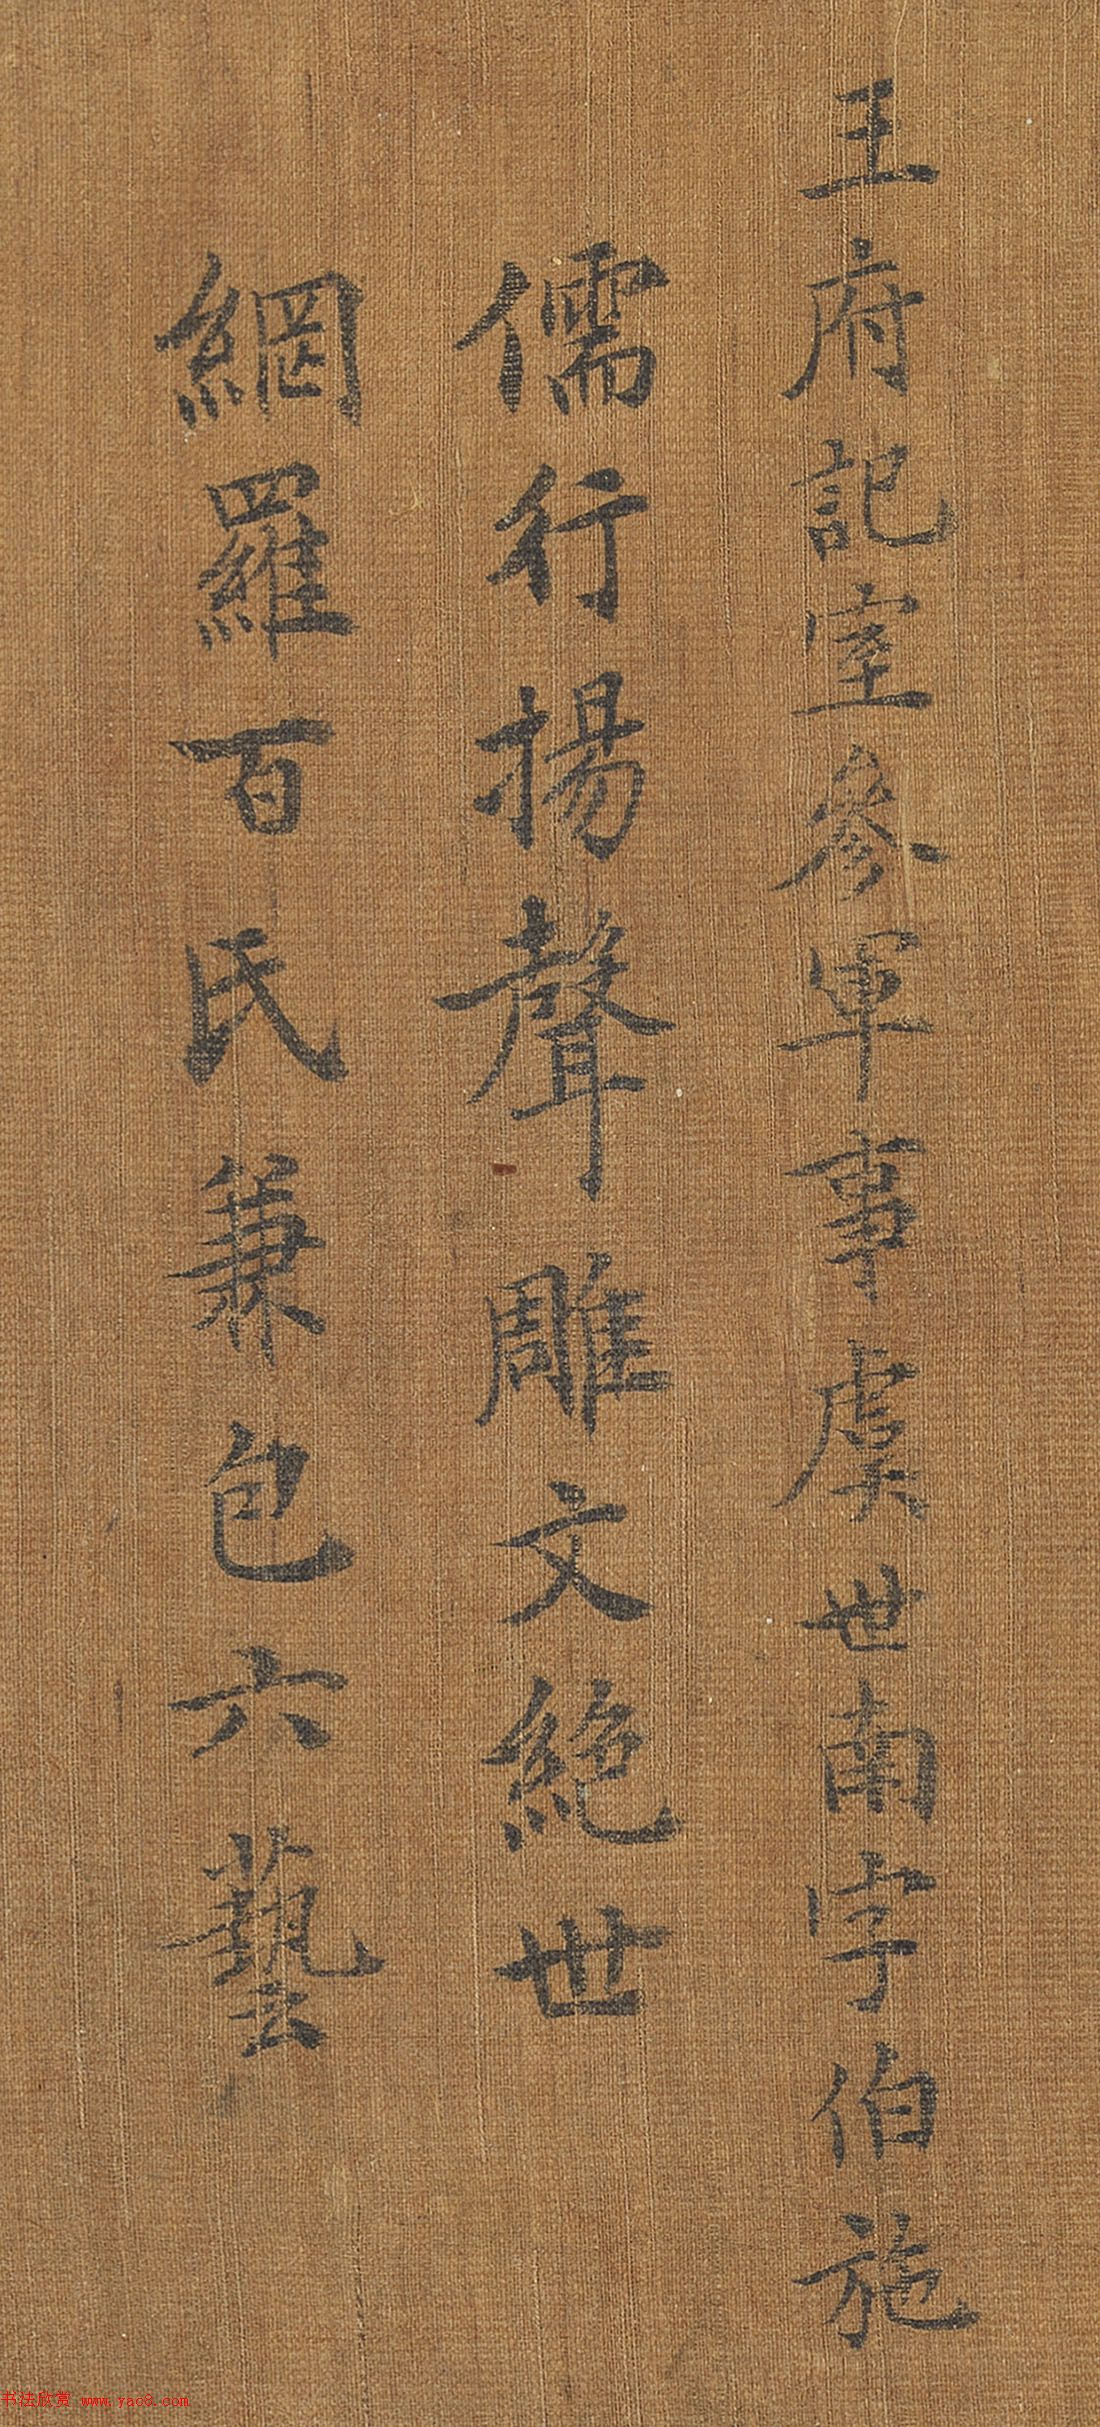 王府記室參軍事虞世南字伯施
儒行揚聲雕文絕世
網羅百氏兼包六藝
书法欣赏 www.yac8.com